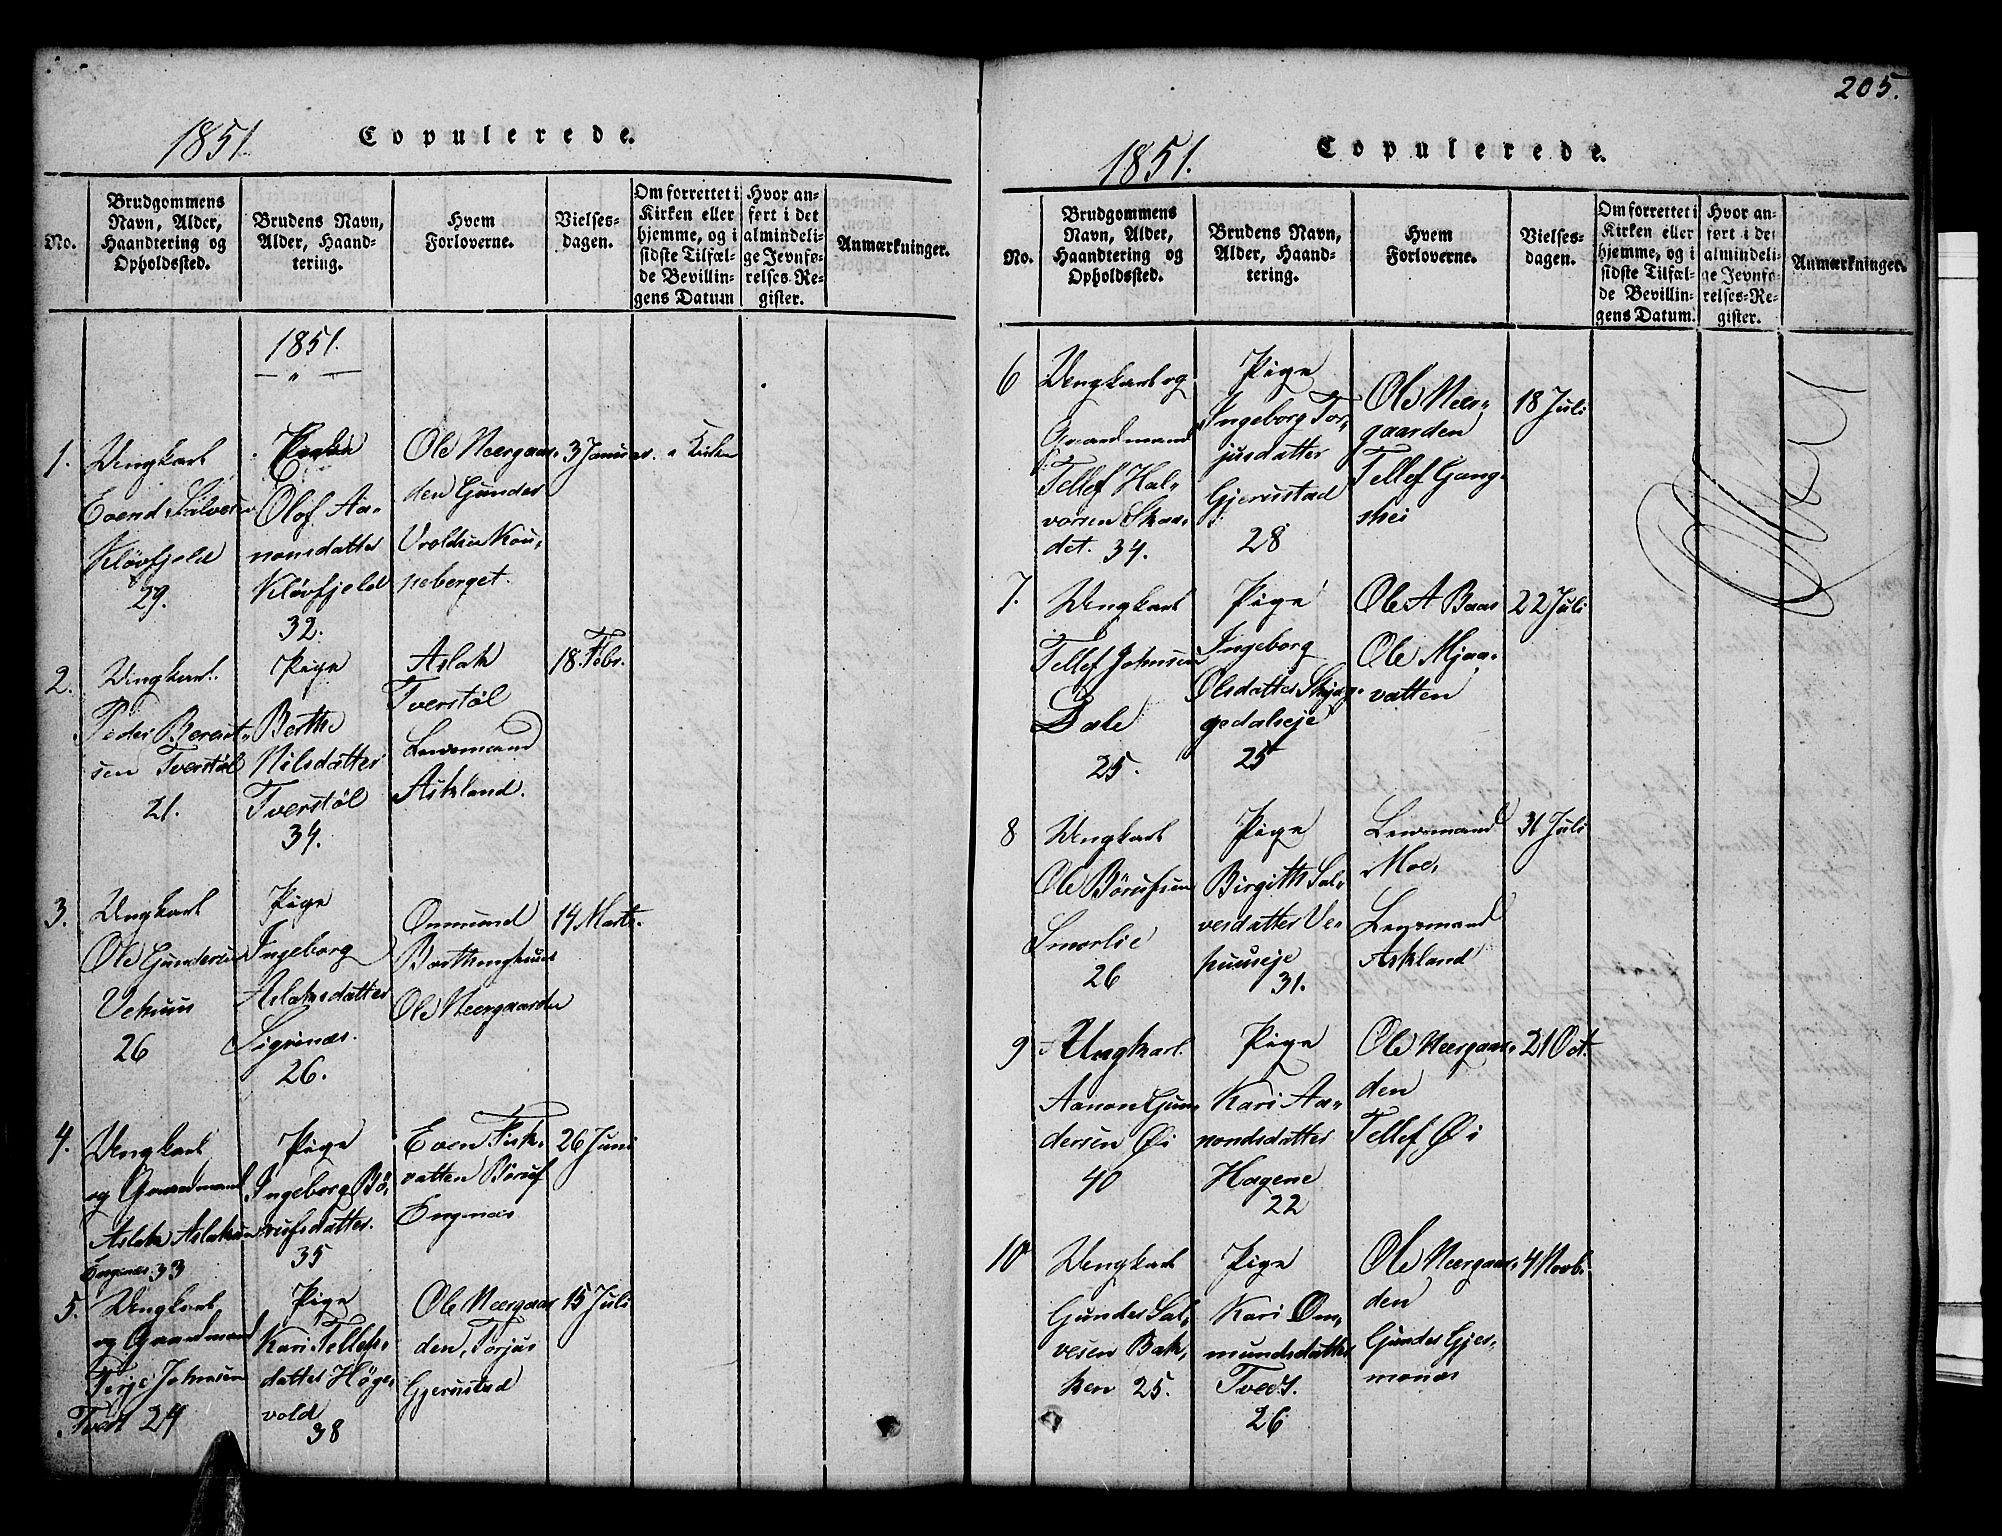 205.
1851.
Copulerede.
No.
Brudgommens
Navn, Alder,
Haandtering og
Opholdssted.
Brudens Navn,
Alder, Haand-
tering.
Hvem
Forloverne.
Vielses-
dagen.
Om forrettet i
Kirken eller
hjemme, og i
sidste Tilfæl-
de Bevillin-
gens Datum
Hvor an-
ført i det
almindeli-
ge Jevnfø-
relses-Re-
gister.
Anmærkninger.
1851.
"
1.
Ungkarl
Evend Salvesen
Kløvfjeld
29.
Olof Aa-
nonsdatter
Kløvfjeld
32.
Ole Neergaar-
den Gunder
Uroldsen Kou-
peberget.
3 Januar.
i Kirken
2.
Ungkarl.
Peder Berent-
sen Tverstøl
21.
Pige
Berthe
Nilsdatter
Tverstøl
34.
Aslak
Tverstøl
Lensmand
Askland.
18. Febr.
3.
Ungkarl
Ole Gundersen
Vehuus
26
Pige
Ingeborg
Aslaksdatter
Sigrinæs.
26.
Ommund
Ole Neergaarden
14 Marts.
4.
Ungkarl
og Gaardmand
Aslak Aslaksen
Engenæs. 33
Pige
Ingeborg Bø-
rufsdatter.
35
Even Fisk-
vatten Børuf
Engenæs
26 Juni
5.
Ungkarl
og Gaardmand
Terje Johnsen
Tvert 24
Pige
Kari Tellefs-
datter Høge-
vold
38
Ole Neergaar
den, Torjus
Gjerustad
15 Juli
1851.
Copulerede.
No.
Brudgommens
Navn, Alder,
Haandtering og
Opholdssted.
Brudens Navn,
Alder, Haand-
tering.
Hvem
Forloverne.
Vielses-
dagen.
Om forrettet i
Kirken eller
hjemme, og i
sidste Tilfæl-
de Bevillin-
gens Datum.
Hvor an-
ført i det
almindeli-
ge Jevnfø-
relses-Re-
gister.
Anmærkninger.
6
Ungkarl og
Gaardmand
Tellef Hal-
vorsen Skaa-
det. 34.
Pige
Ingeborg Tor-
jusdatter
Gjerustad
28
Ole Neer-
gaarden
Tellef Gang-
shei
18 Juli
7.
Ungkarl
Tellef Johnsen
Dale
25.
Pige
Ingeborg
Olsdatter Skjæg-
gedalseje
25
Ole A Baas
Ole Mjaa-
vatten
22 Juli
8
Ungkarl
Ole Børufsen
Smorlie
26
Pige
Birgithe Sal-
vesdatter Ve-
huuseje
31.
Lensmand
Moe,
Lensmand
Askland
31 Juli
9
Ungkarl.
Aanon Gun-
dersen Øi
40
Pige
Kari Aa-
nondsdatter
Hagene
22
Ole Neergaar-
den
Tellef Øi
21 Oct.
10
Ungkarl
Gunder Sal-
vesen Bak-
ken 25.
Pige
Kari Om-
mundsdatter
Tvedt.
26
Ole Neergaar-
den
Gunder Gjer-
monæs
4 Novb.